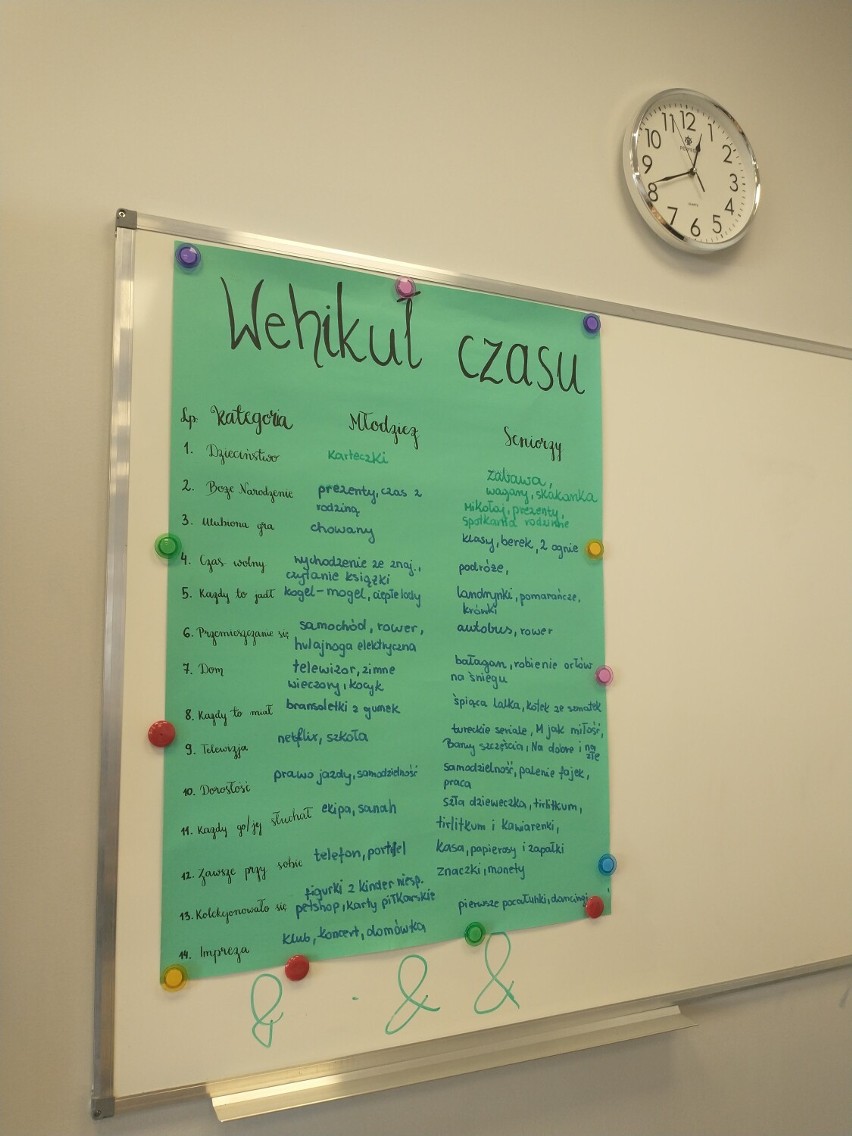 12
1
2
3
4
5
6
7
8
9
10
11
Wehikuł czasu
Lp. Kategoria Młodzież Seniorzy
1. Dzieciństwo karteczki zabawa,
wagary, skakanka
2. Boże Narodzenie prezenty, czas z
rodziną
Mikołaj, prezenty,
spotkania rodzinne
3. Ulubiona gra chowany klasy, berek, 2 ognie
4. Czas wolny wychodzenie ze znaj.,
czytanie książki
podróże,
5. Każdy to jadł kogel-mogel, ciepłe lody
landrynki, pomarańcze,
krówki
6. Przemieszczanie się samochód, rower,
hulajnoga elektryczna
autobus, rower
7. Dom telewizor, zimne
wieczory, kocyk
bałagan, robienie orłów
na śniegu
8. Każdy to miał bransoletki z gumek śpiąca lalka, kółek ze szmatek
9. Telewizja netflix, szkoła
tureckie seriale, M jak miłość,
Barwy szczęścia, Na dobre i na
złe
10. Dorosłość prawo jazdy, samodzielność
samodzielność, palenie fajek,
praca
11. Każdy go/jej słuchał ekipa, sanah
szła dzieweczka, tirlitkum,
tirlitkum i kawiarenki,
12. Zawsze przy sobie telefon, portfel kasa, papierosy i zapałki
13. Kolekcjonowało się figurki z kinder niesp.
petshop, karty piłkarskie
znaczki, monety
14. Impreza klub, koncert, domówka pierwsze pocałunki, dancingi
& . & &